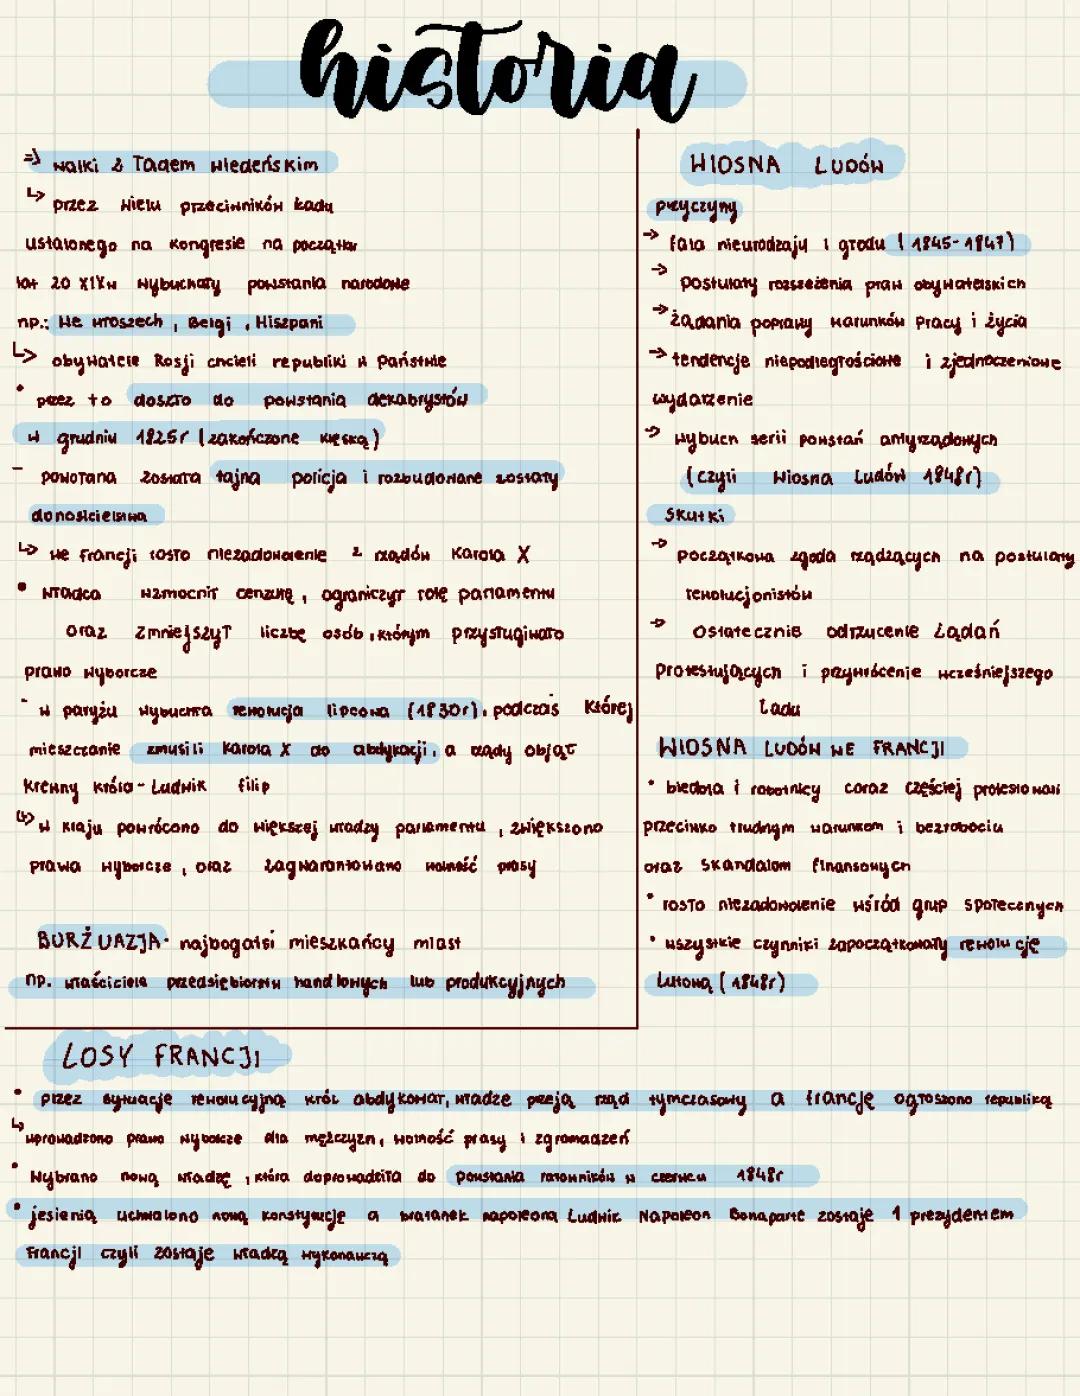 historia
=> walki z Ładem wiedeńskim
↳ przez wielu przeciwników ładu
ustalonego na kongresie na początku
lat 20 XIXw wybuchały powstania narodowe
np.: we włoszech, Belgi, Hiszpani
↳ obywatele Rosji chcieli republiki w państwie
• przez to doszło do powstania dekabrystów
w grudniu 1825r (zakończone klęską)
- powołana została tajna policja i rozbudowane zostały
donosicielstwa
↳ we francji rosło niezadowolenie z rządów Karola X
• władca wzmocnił cenzurę, ograniczył rolę parlamentu
oraz zmniejszył liczbę osób, którym przysługiwało
prawo wyborcze
- w paryżu wybuchła rewolucja lipcowa (1830r), podczas której
mieszczanie zmusili Karola X do abdykacji, a rządy objął
krewny króla - Ludwik filip
↳ w kraju powrócono do większej władzy parlamentu, zwiększono
prawa wyborcze, oraz zagwarantowano wolność prasy
BURŻUAZJA - najbogatsi mieszkańcy miast
np. właściciele przedsiębiorstw handlowych lub produkcyjnych
WIOSNA LUDÓW
przyczyny
→ fala nieurodzaju i głodu (1845-1847)
→ postulaty rozszeżenia praw obywatelskich
→ żądania poprawy warunków pracy i życia
→ tendencje niepodległościowe i zjednoczeniowe
wydarzenie
→ wybuch serii powstań antyrządowych
(czyli Wiosna Ludów 1848r)
skutki
→ początkowa zgoda rządzących na postulaty
rewolucjonistów
→ ostatecznie odrzucenie żądań
protestujących i przywrócenie wcześniejszego
ładu
WIOSNA LUDÓW WE FRANCJI
• biedota i robotnicy coraz częściej protestowali
przeciwko trudnym warunkom i bezrobociu
oraz skandalom finansowych
• rosło niezadowolenie wśród grup społecznych
• wszystkie czynniki zapoczątkowały rewolucję
Lutową (1848r)
LOSY FRANCJI
• przez sytuację rewolucyjną król abdykował, władze przejął rząd tymczasowy a francję ogłoszono republiką
↳ wprowadzono prawo wyborcze dla mężczyzn, wolność prasy i zgromadzeń
• Wybrano nową władzę, która doprowadziła do powstania robotników w czerwcu 1848r
• jesienią uchwalono nową konstytucję a bratanek napoleona Ludwik Napoleon Bonaparte zostaje 1 prezydentem
Francji czyli zostaje władzą wykonawczą